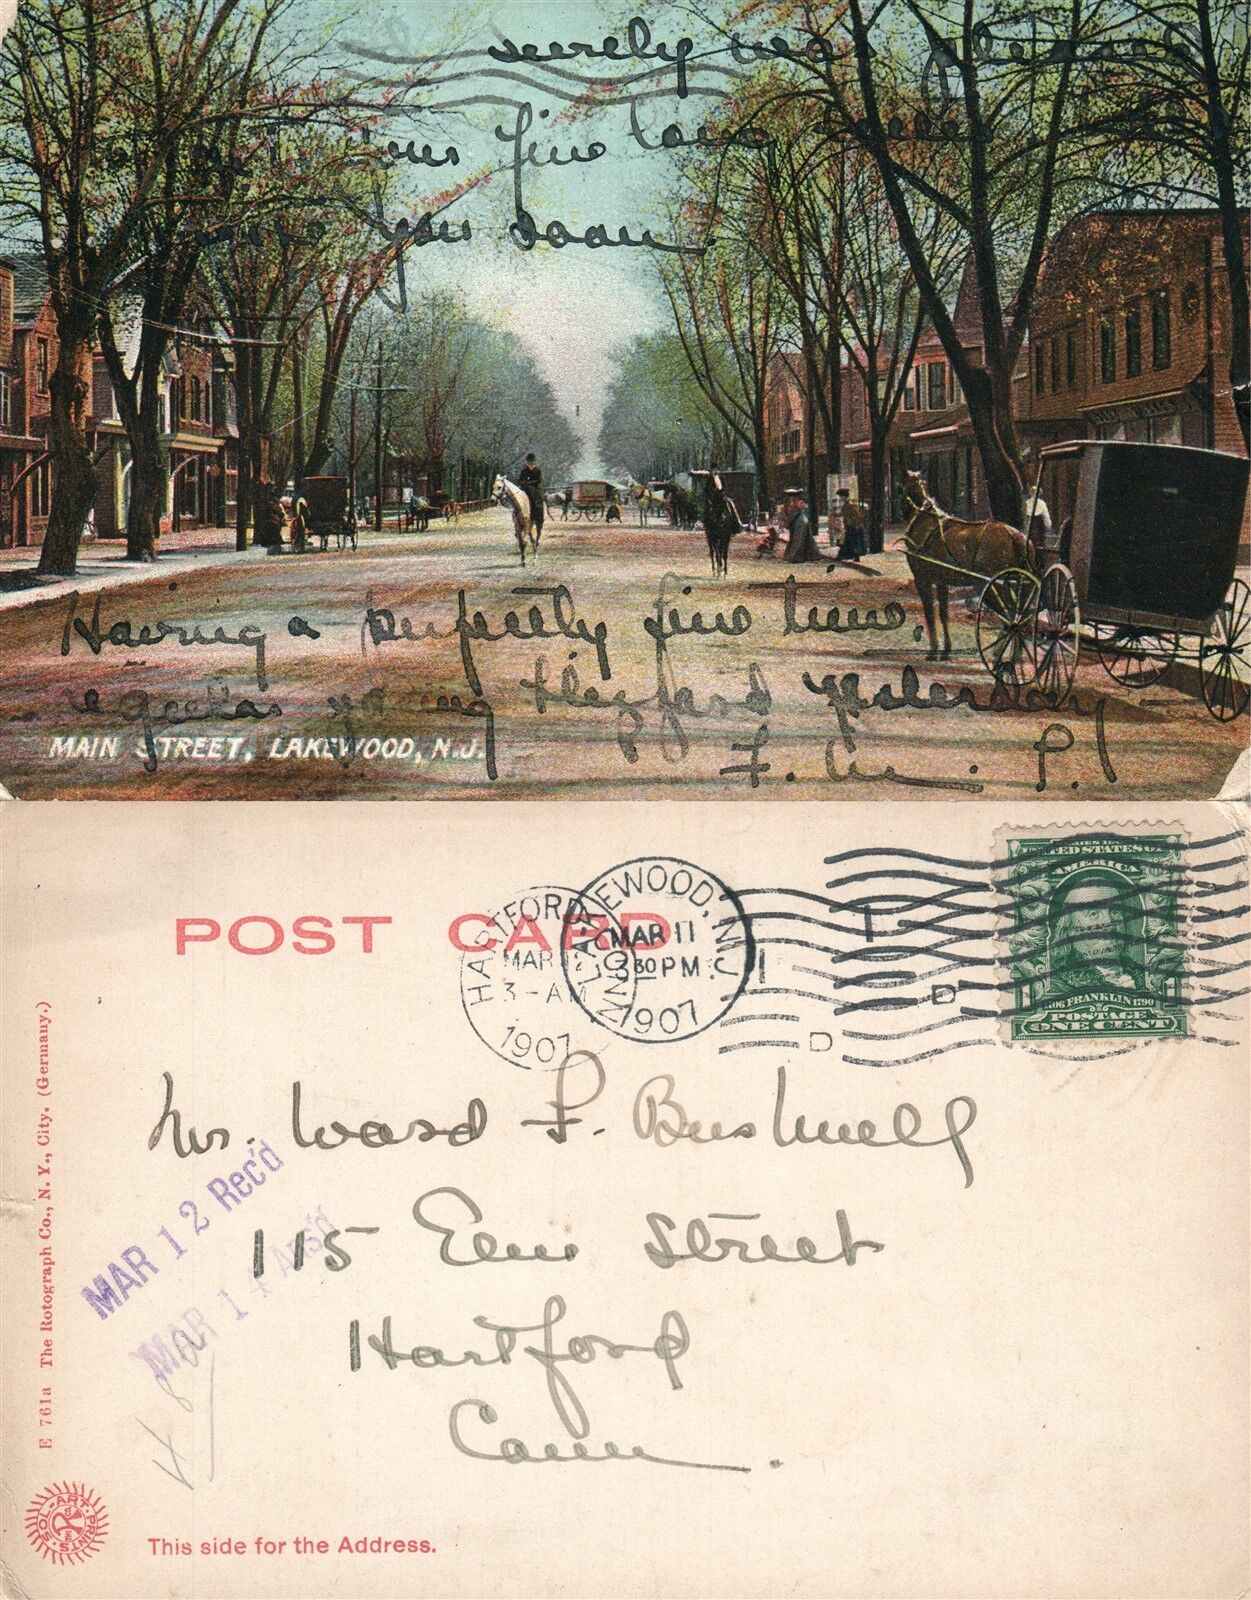 surely was pleased
your fine
you soon.
Having a perfectly fine time,
yesterday
F. P.
MAIN STREET, LAKEWOOD, N.J.
POST CARD
HARTFORD CONN
MAR 12
3-AM
1907
LAKEWOOD, N.J.
MAR 11
3 30 PM
1907
D
D
UNITED STATES OF
AMERICA
1706 FRANKLIN 1790
POSTAGE
ONE CENT
Mr. Ward F. Bushnell
115 Elm Street
Hartford
Conn.
MAR 12 Rec'd
MAR 14 Ans'd
E 761a The Rotograph Co., N. Y., City. (Germany.)
SOL-ART PRINTS
This side for the Address.